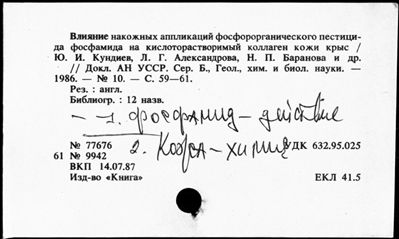 Влияние накожных аппликаций фосфорорганического пестици-
да фосфамида на кислоторастворимый коллаген кожи крыс /
Ю. И. Кундиев, Л. Г. Александрова, Н. П. Баранова и др.
// Докл. АН УССР. Сер. Б., Геол., хим. и биол. науки. —
1986. — № 10. — С. 59—61.
Рез. : англ.
Библиогр. : 12 назв.
– 1. Фосфамид – действие
2. Кожа – химия
№ 77676 УДК 632.95.025
61 № 9942
ВКП 14.07.87
Изд-во «Книга» ЕКЛ 41.5